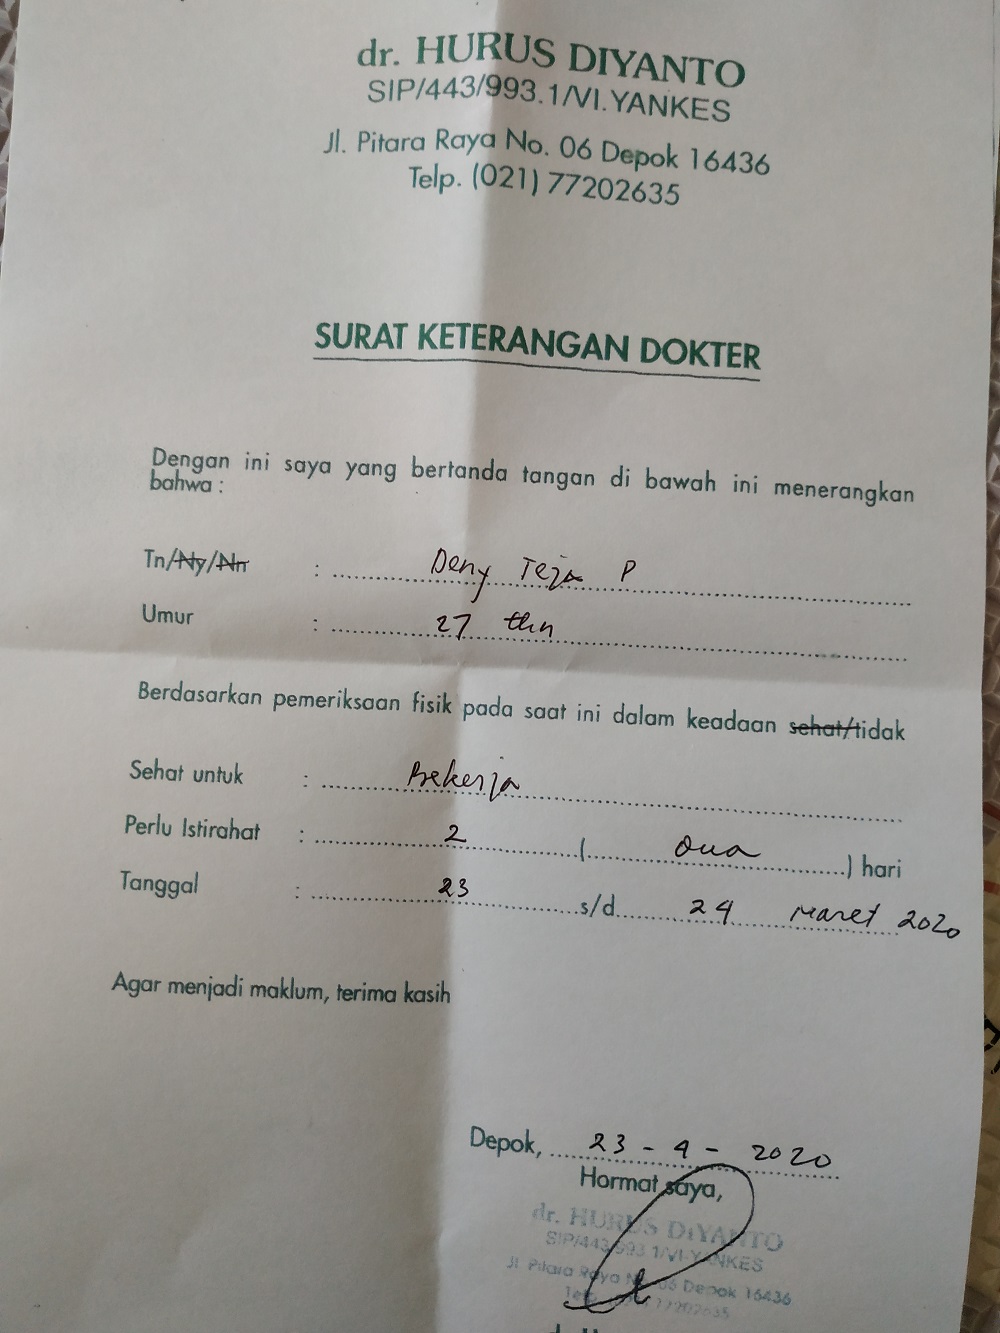 dr. HURUS DIYANTO
SIP/443/993.1/VI.YANKES
Jl. Pitara Raya No. 06 Depok 16436
Telp. (021) 77202635
SURAT KETERANGAN DOKTER
Dengan ini saya yang bertanda tangan di bawah ini menerangkan
bahwa :
Tn/Ny/Nn : Deny Teja P
Umur : 27 thn
Berdasarkan pemeriksaan fisik pada saat ini dalam keadaan sehat/tidak
Sehat untuk : Bekerja
Perlu Istirahat : 2 ( Dua ) hari
Tanggal : 23 s/d 24 Maret 2020
Agar menjadi maklum, terima kasih
Depok, 23 - 4 - 2020
Hormat saya,
dr. HURUS DIYANTO
SIP/443/993.1/VI-YANKES
Jl Pitara Raya No 06 Depok 16436
77202635